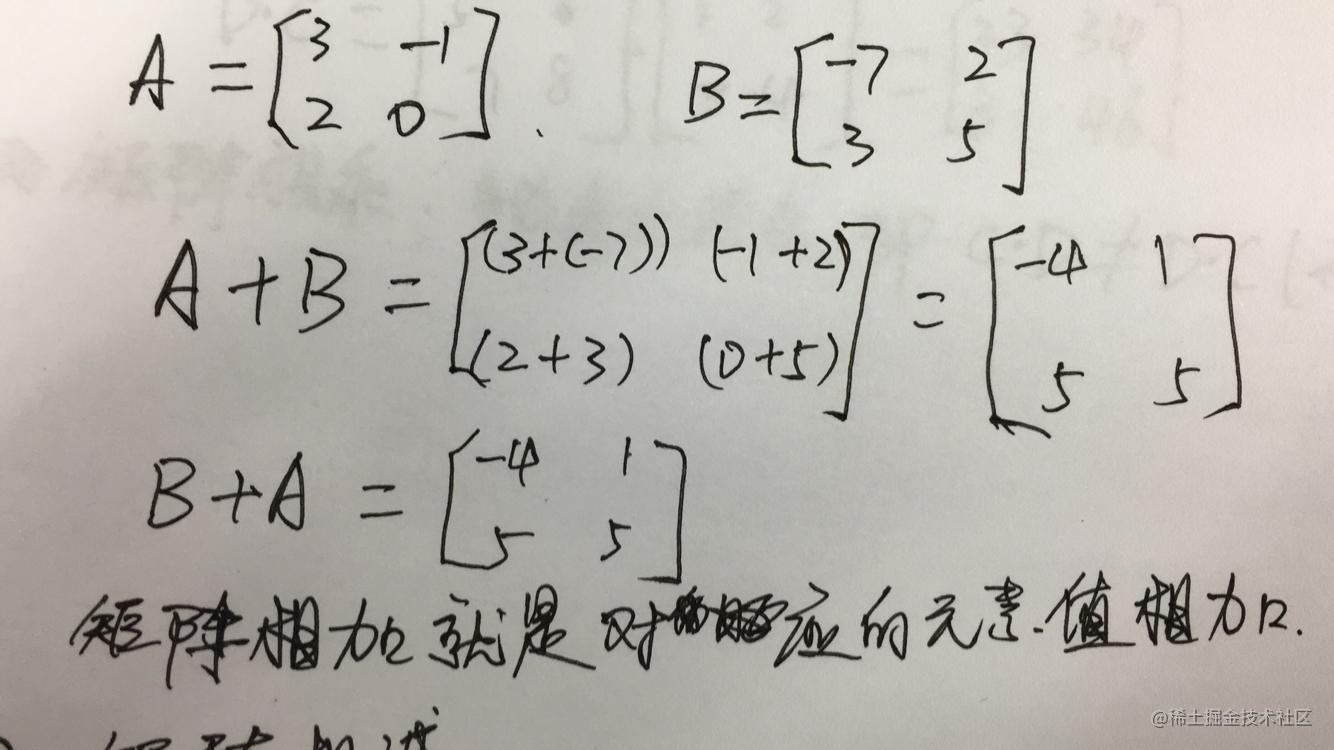 A = [3 -1
2 0] . B = [-7 2
3 5]
A + B = [(3+(-7)) (-1+2)
(2+3) (0+5)] = [-4 1
5 5]
B+A = [-4 1
5 5]
矩阵相加就是对应的元素.值相加.
@稀土掘金技术社区